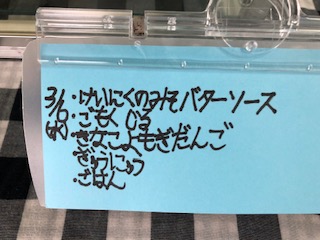 3/6(水)
・けいにくのみそバターソース
・ごもくじる
・きなこよもぎだんご
・ぎゅうにゅう
・ごはん